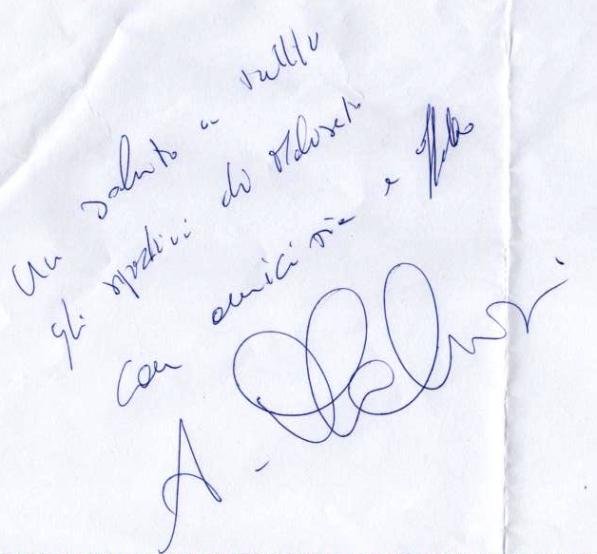 Un saluto a tutti
gli sportivi di
con amicizia e
A.